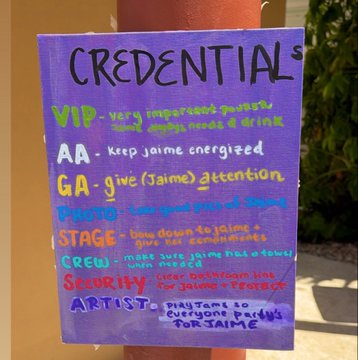 CREDENTIALS
VIP - very important person
always needs a drink
AA - Keep jaime energized
GA - give (Jaime) attention
PHOTO - take good pics of Jaime
STAGE - bow down to jaime +
give her compliments
CREW - make sure jaime has a towel
when needed
SECURITY - clear bathroom line
for jaime + PROTECT
ARTIST - PLAY JAMS SO
everyone party's
FOR JAIME